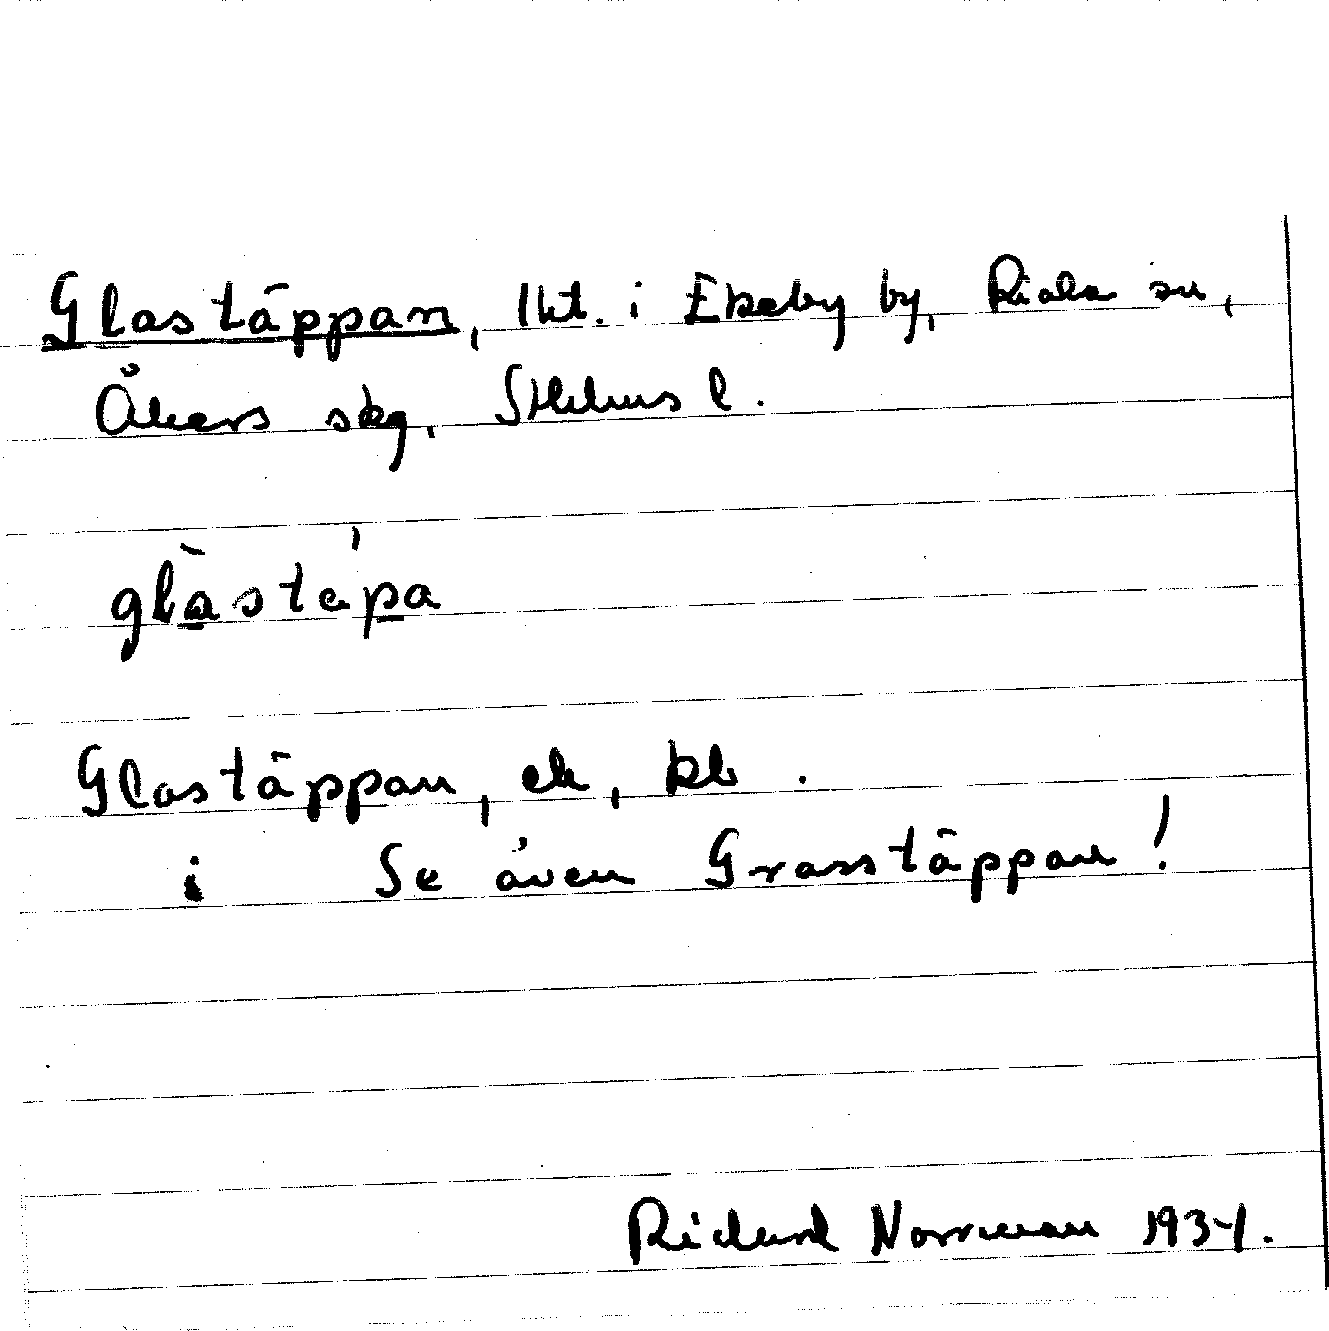 Glastäppan, lkt. i Ekeby by, Riala sn,
Åkers skg, Sthlms l.
glàstépa
Glastäppan, ek, kb.
i Se även Grasstäppan!
Richard Norrman 1934.